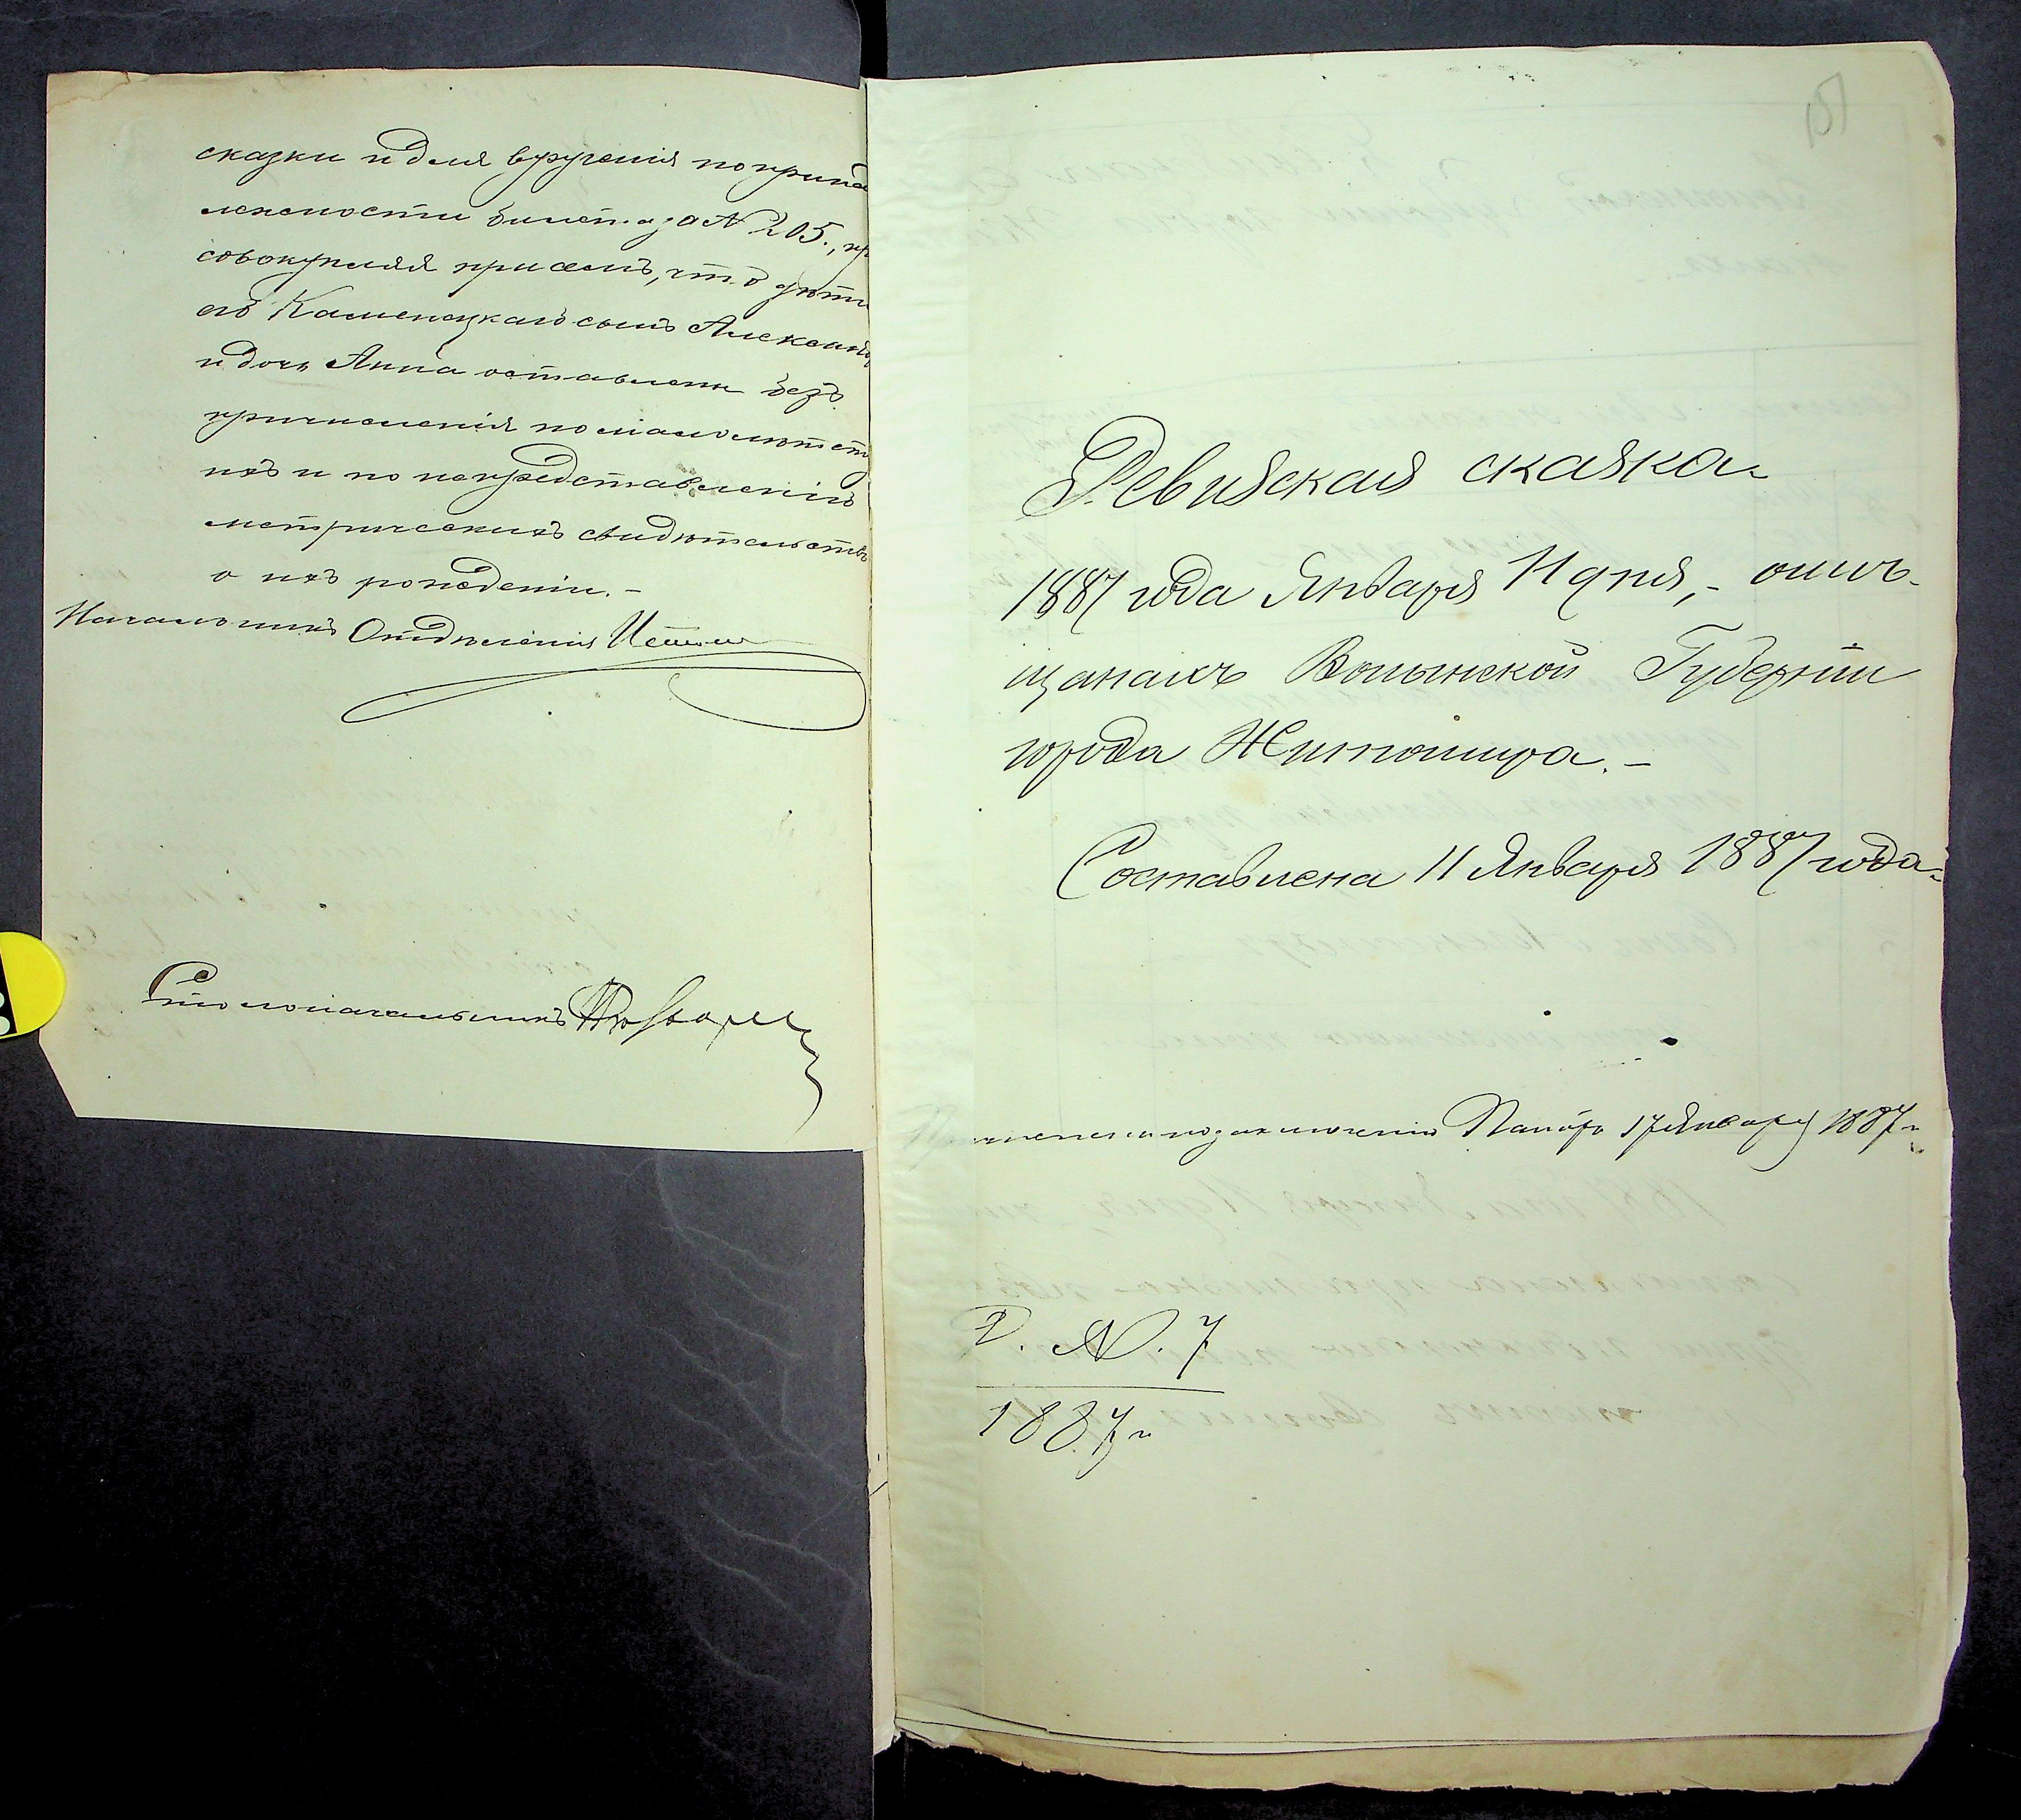 сказки и для врученія по принад
лежности билет. за № 205., пр
совокупляя при семъ, что дѣти
его Каменецкаго сынъ Александр
и дочь Анна оставлены безъ
причисленія по малолѣтст
ихъ и по непредставленію
метрическихъ свидѣтельствъ
о ихъ рожденіи.-
Начальникъ Отдѣленія
Столоначальникъ
Ревизская сказка
1887 года Января 11 дня,- о мѣ-
щанахъ Волынской Губерніи
города Житомира.-
Составлена 11 Января 1887 года.
по заключенію Палаты 17 Января 1887 г.
Д. №. 7
1887 г.